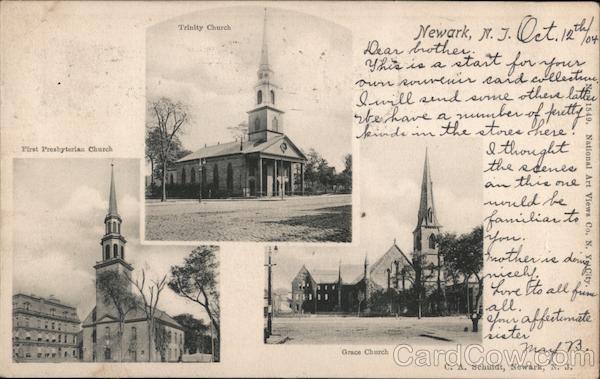 Trinity Church
Newark, N. J. Oct. 12th/04
Dear brother.
This is a start for your
own souvenir card collection
I will send some others latter
We have a number of pretty
kinds in the stores here.
I thought
the scenes
on this one
would be
familiar to
you.
Mother is doing
nicely.
Love to all from
all.
Your affectunate
sister
May B.
First Presbyterian Church
Grace Church
No. 1549. National Art Views Co. N. Y. City.
C. A. Schuldt, Newark, N. J.
CardCow.com